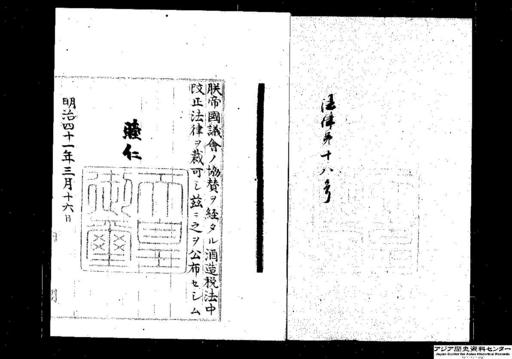 法律第十八号
朕帝國議會ノ協賛ヲ経タル酒造税法中
改正法律ヲ裁可シ茲ニ之ヲ公布セシム
睦仁
天皇御璽
明治四十一年三月十六日
アジア歴史資料センター
Japan Center for Asian Historical Records